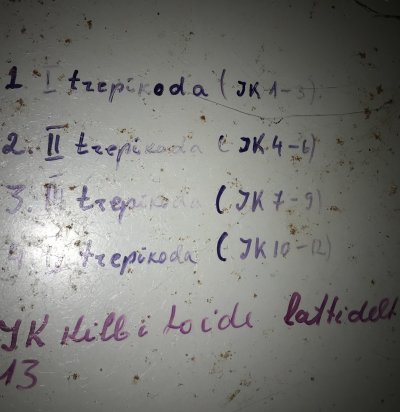 1. I trepikoda (JK 1-3)
2. II trepikoda (JK 4-6)
3. III trepikoda (JK 7-9)
trepikoda (JK 10-12)
JK kilbi toide lattidelt
13